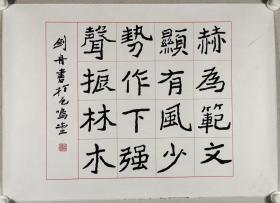 赫為範文
顯有風少
勢作下强
聲振林木
劍舟書於